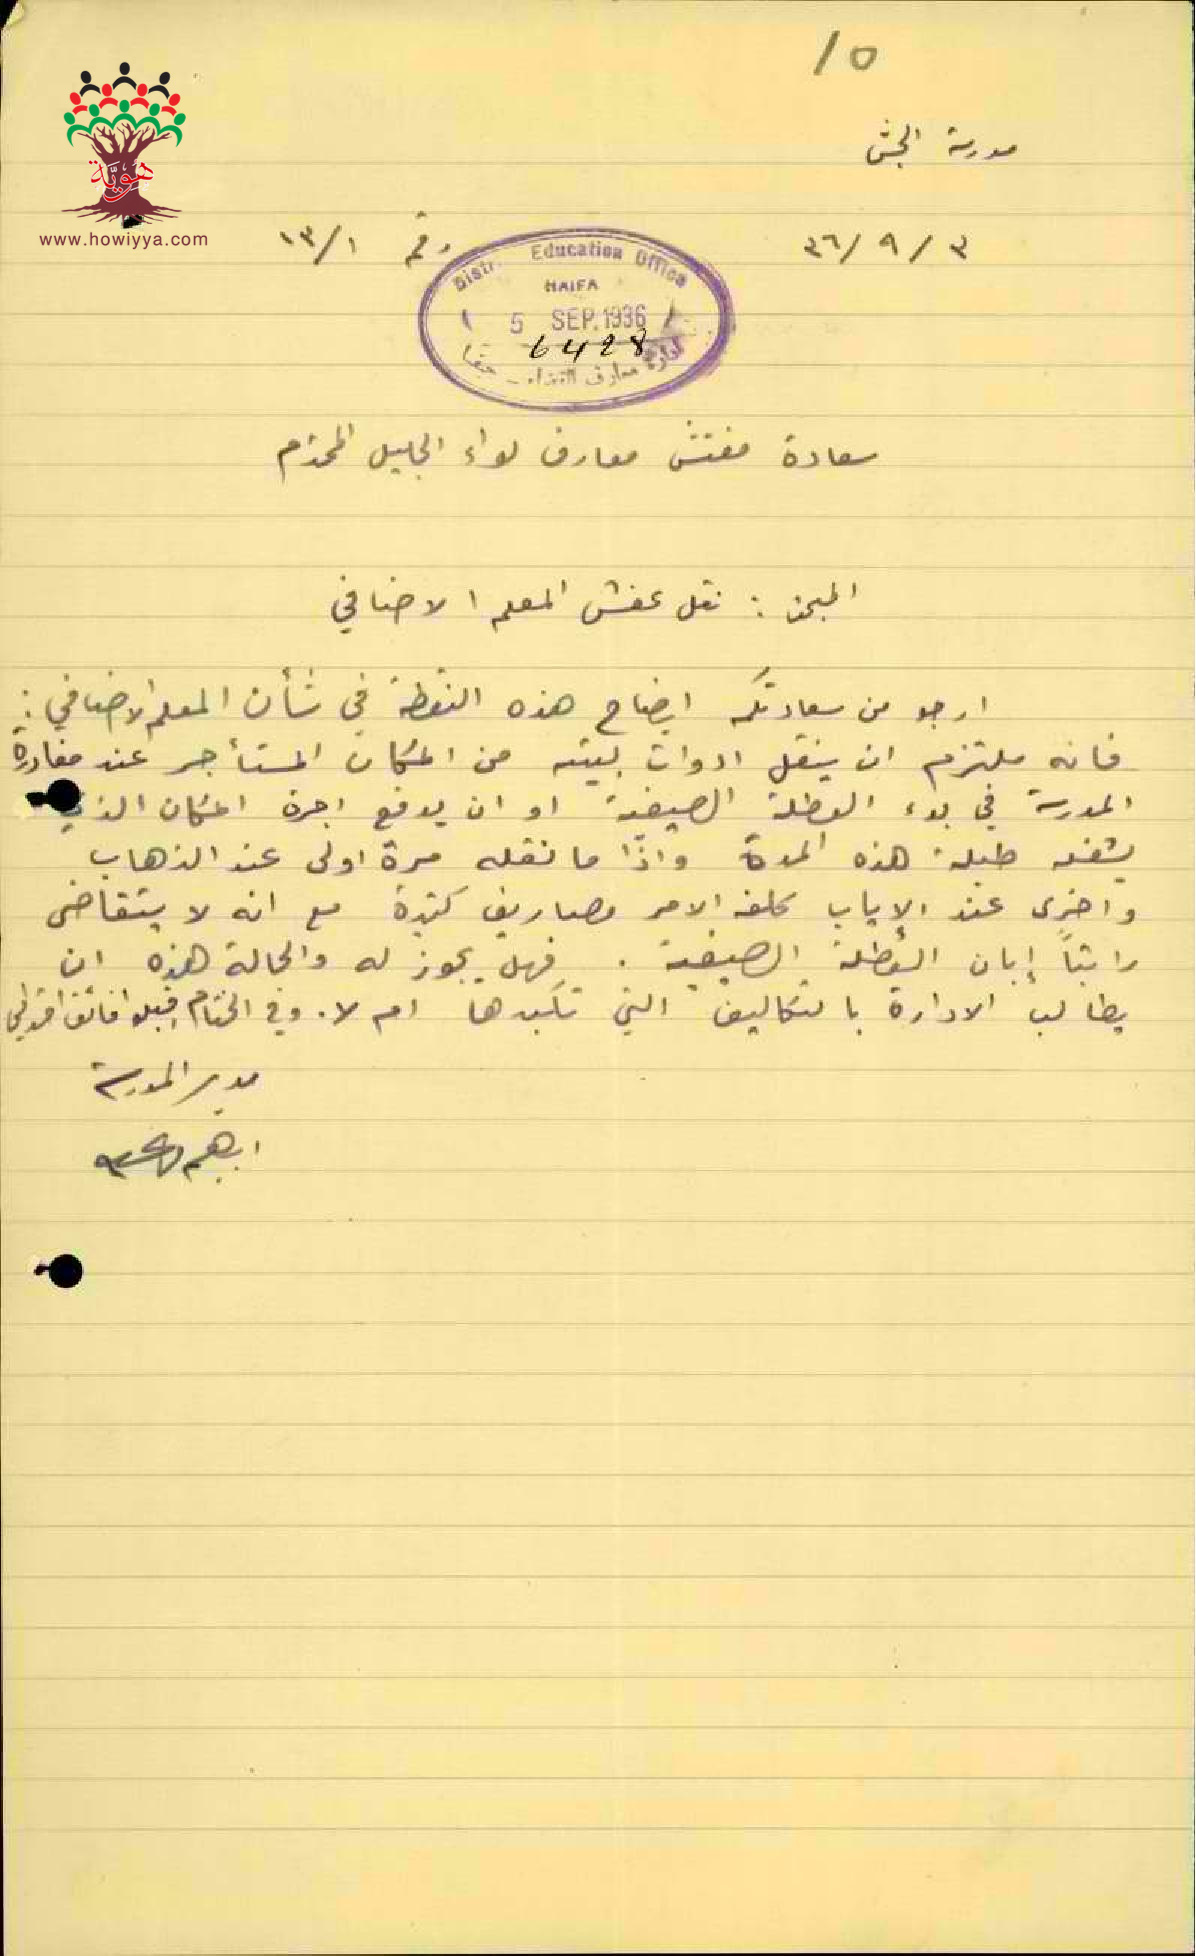 ١٥
مدرسة الجش
٣ / ٩ / ٣٦
رقم ١٣/١
هوية
www.howiyya.com
District Education Office
HAIFA
5 SEP. 1936
6428
ادارة معارف القضاء - حيفا
سعادة مفتش معارف لواء الجليل المحترم
المبحث : نقل عفش المعلم الاضافي
ارجو من سعادتكم ايضاح هذه النقطة في شأن المعلم الاضافي :
فانه ملتزم ان ينقل ادوات بيته من المكان المستأجر عند مغادرة
المدرسة في بدء العطلة الصيفية او ان يدفع اجرة المكان الذي
يشغله طيلة هذه المدة واذا ما نقله مرة اولى عند الذهاب
واخرى عند الإياب كلفه الامر مصاريف كثيرة مع انه لا يتقاضى
راتباً إبان العطلة الصيفية . فهل يجوز له والحالة هذه ان
يطالب الادارة بالتكاليف التي تكبدها ام لا . وفي الختام اقبلوا فائق احترامي
مدير المدرسة
ابرهيم